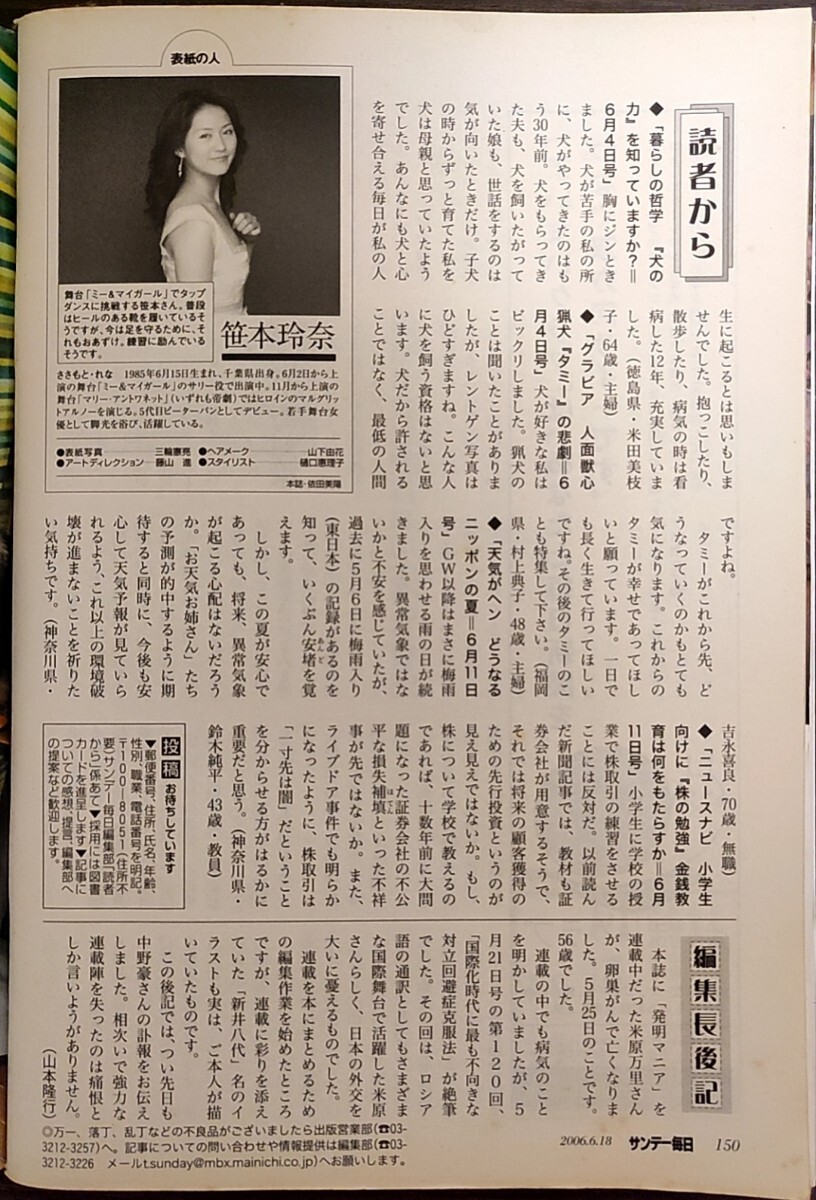 表紙の人
舞台「ミー&マイガール」でタップ
ダンスに挑戦する笹本さん。普段
はヒールのある靴を履いているそ
うですが、今は足を守るために、そ
れもおあずけ。練習に励んでいる
そうです。
笹本玲奈
ささもと・れな　1985年6月15日生まれ、千葉県出身。6月2日から上
演の舞台「ミー&マイガール」のサリー役で出演中。11月から上演の
舞台「マリー・アントワネット」(いずれも帝劇)ではヒロインのマルグリッ
トアルノーを演じる。5代目ピーターパンとしてデビュー。若手舞台女
優として脚光を浴び、活躍している。
●表紙写真　三輪憲亮　●ヘアメーク　山下由花
●アートディレクション　藤山　進　●スタイリスト　樋口恵理子
本誌・依田美陽
読者から
◆「暮らしの哲学　『犬の
力』を知っていますか?＝
6月4日号」胸にジンとき
ました。犬が苦手の私の所
に、犬がやってきたのはも
う30年前。犬をもらってき
た夫も、犬を飼いたがって
いた娘も、世話をするのは
気が向いたときだけ。子犬
の時からずっと育てた私を
犬は母親と思っていたよう
でした。あんなにも犬と心
を寄せ合える毎日が私の人
生に起こるとは思いもしま
せんでした。抱っこしたり、
散歩したり、病気の時は看
病した12年、充実していま
した。(徳島県・米田美枝
子・64歳・主婦)
◆「グラビア　人面獣心
猟犬『タミー』の悲劇＝6
月4日号」犬が好きな私は
ビックリしました。猟犬の
ことは聞いたことがありま
したが、レントゲン写真は
ひどすぎますね。こんな人
に犬を飼う資格はないと思
います。犬だから許される
ことではなく、最低の人間
ですよね。
　タミーがこれから先、ど
うなっていくのかもとても
気になります。これからの
タミーが幸せであってほし
いと願っています。一日で
も長く生きて行ってほしい
ですね。その後のタミーのこ
とも特集して下さい。(福岡
県・村上典子・48歳・主婦)
◆「天気がヘン　どうなる
ニッポンの夏＝6月11日
号」GW以降はまさに梅雨
入りを思わせる雨の日が続
きました。異常気象ではな
いかと不安を感じていたが、
過去に5月6日に梅雨入り
(東日本)の記録があるのを
知って、いくぶん安堵を覚
えます。
　しかし、この夏が安心で
あっても、将来、異常気象
が起こる心配はないだろう
か。「お天気お姉さん」たち
の予測が的中するように期
待すると同時に、今後も安
心して天気予報が見ていら
れるよう、これ以上の環境破
壊が進まないことを祈りた
い気持ちです。(神奈川県・
吉永喜良・70歳・無職)
◆「ニュースナビ　小学生
向けに『株の勉強』金銭教
育は何をもたらすか＝6月
11日号」小学生に学校の授
業で株取引の練習をさせる
ことには反対だ。以前読ん
だ新聞記事では、教材も証
券会社が用意するそうで、
それでは将来の顧客獲得の
ための先行投資というのが
見え見えではないか。もし、
株について学校で教えるの
であれば、十数年前に大問
題になった証券会社の不公
平な損失補填といった不祥
事が先ではないか。また、
ライブドア事件でも明らか
になったように、株取引は
「一寸先は闇」だということ
を分からせる方がはるかに
重要だと思う。(神奈川県・
鈴木純平・43歳・教員)
投稿　お待ちしています
▼郵便番号、住所、氏名、年齢、
性別、職業、電話番号を明記。
〒100-8051(住所不
要)サンデー毎日編集部「読者
から」係あて▼採用には図書
カードを進呈します▼記事に
ついての感想、提言、編集部へ
の提案など歓迎します。
編集長後記
　本誌に「発明マニア」を
連載中だった米原万里さん
が、卵巣がんで亡くなりま
した。5月25日のことです。
56歳でした。
　連載の中でも病気のこと
を明かしていましたが、5
月21日号の第120回、
「国際化時代に最も不向きな
対立回避症克服法」が絶筆
でした。その回は、ロシア
語の通訳としてもさまざま
な国際舞台で活躍した米原
さんらしく、日本の外交を
大いに憂えるものでした。
　連載を本にまとめるため
の編集作業を始めたところ
ですが、連載に彩りを添え
ていた「新井八代」名のイ
ラストも実は、ご本人が描
いていたものです。
　この後記では、つい先日も
中野豪さんの訃報をお伝え
しました。相次いで強力な
連載陣を失ったのは痛恨と
しか言いようがありません。
(山本隆行)
◎万一、落丁、乱丁などの不良品がございましたら出版営業部(☎03-
3212-3257)へ。記事についての問い合わせや情報提供は編集部(☎03-
3212-3226　メールt.sunday@mbx.mainichi.co.jp)へお願いします。
2006.6.18　サンデー毎日　150